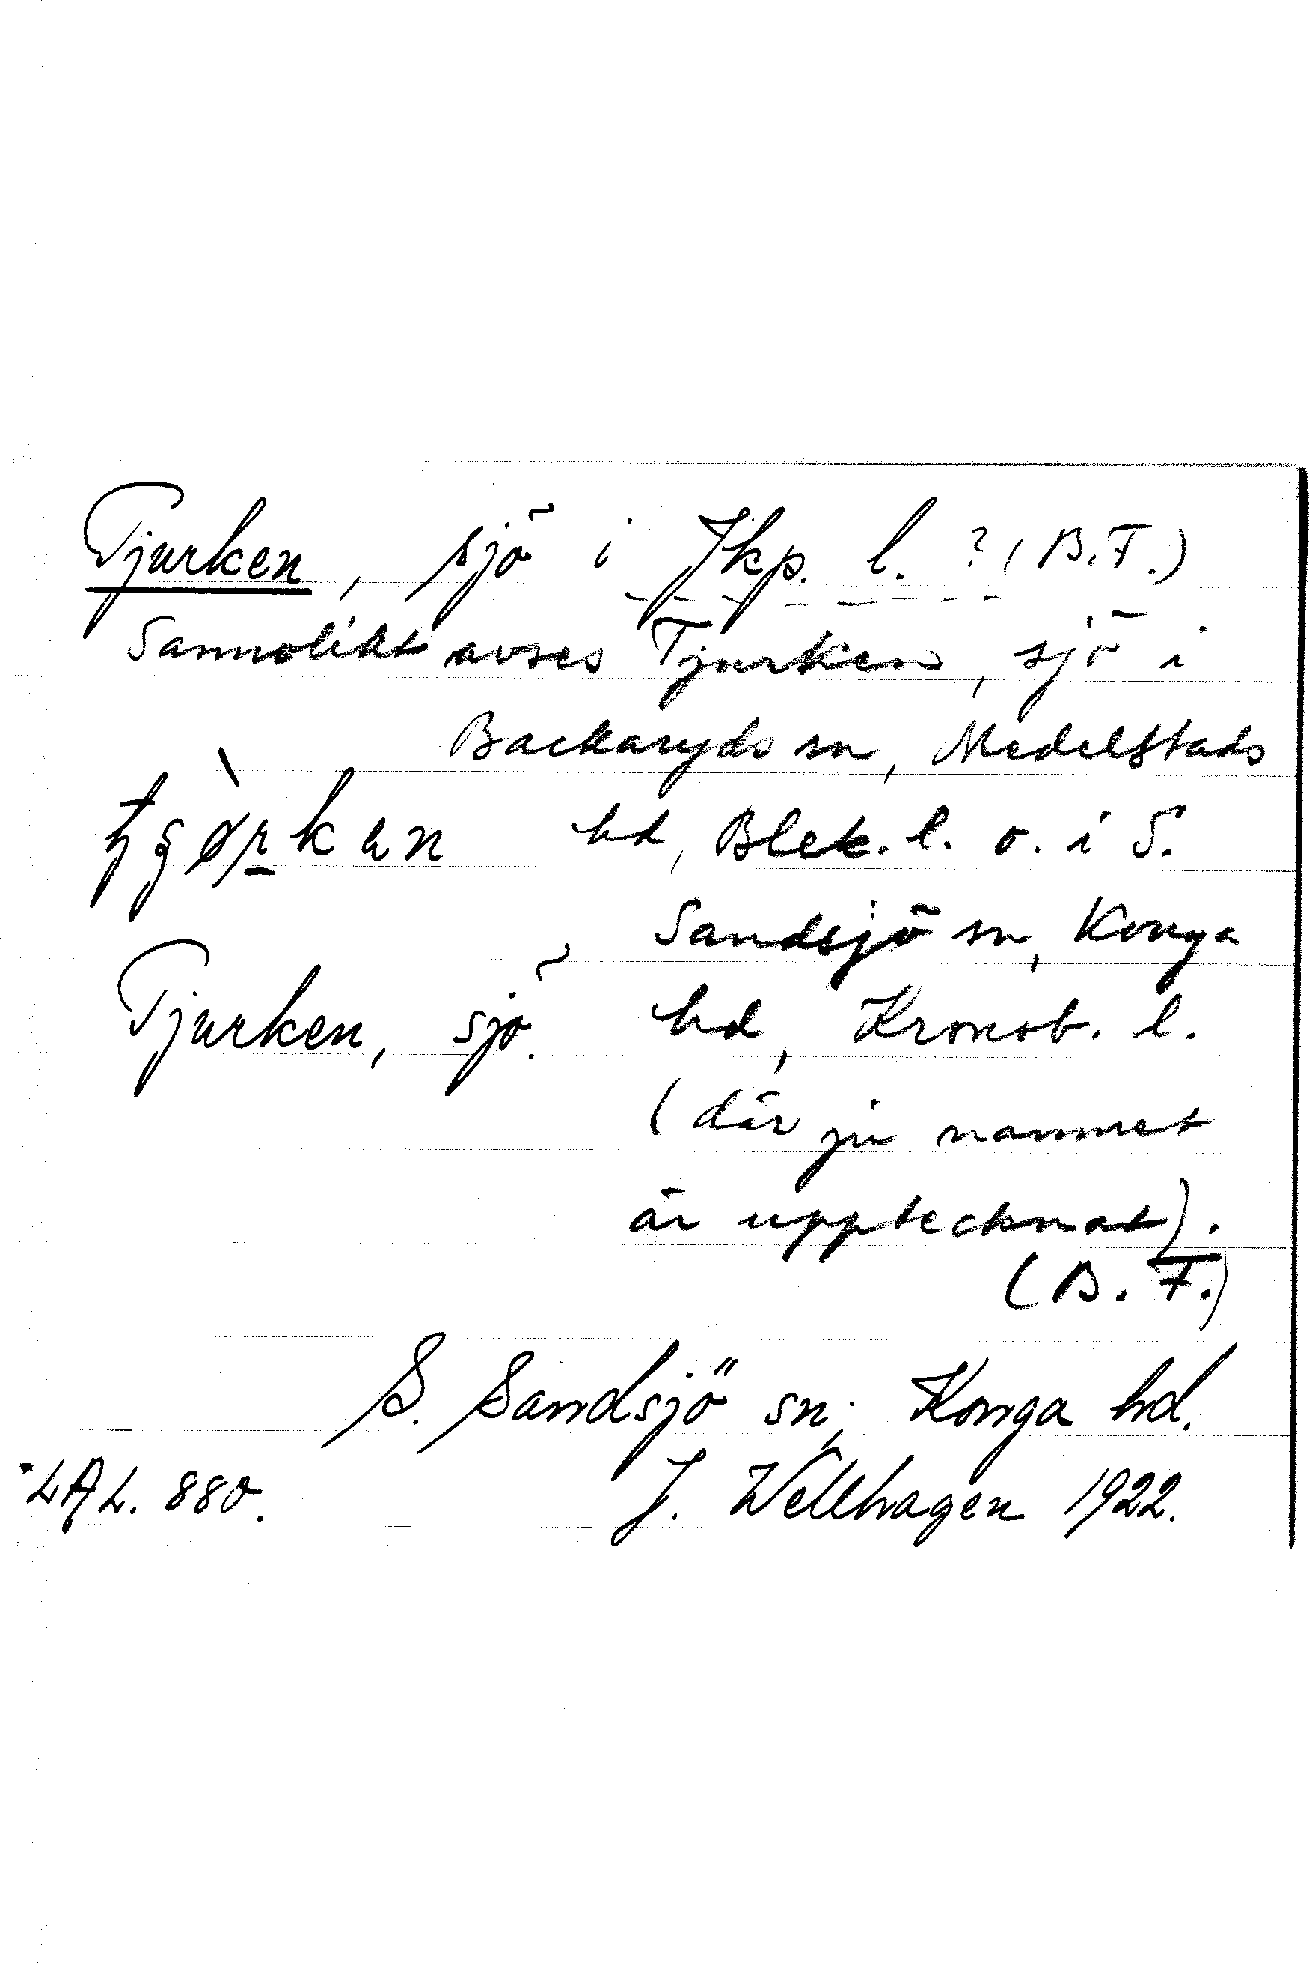 Tjurken, sjö i Jkp. l. ? (B.F.)
Sannolikt avses Tjurken, sjö i
Backaryds sn, Medelstads
hd, Blek. l. o. i S.
Sandsjö sn, Konga
Tjurken, sjö.
hd, Kronob. l.
(där ju namnet
är upptecknat).
(B. F.)
S. Sandsjö sn; Konga hd.
LAL. 880.
J. Wellhagen 1922.